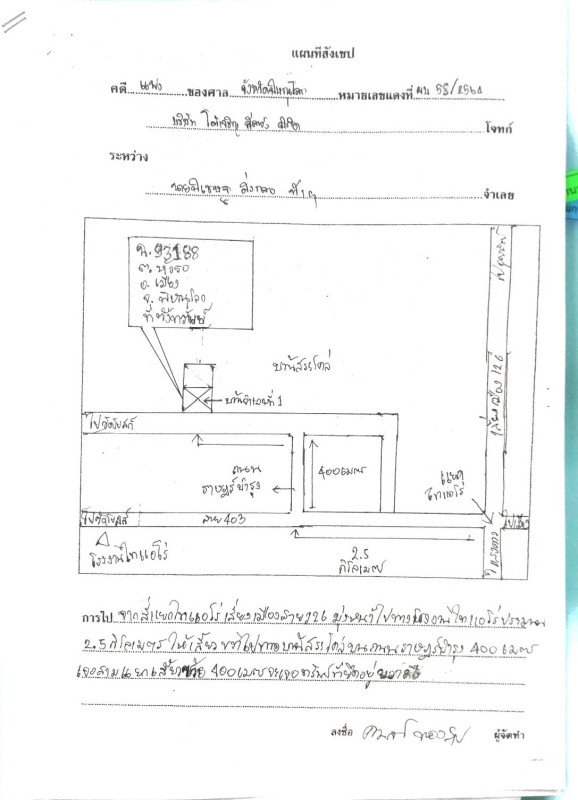 แผนที่สังเขป
คดี แพ่ง ของศาล จังหวัดพิษณุโลก หมายเลขแดงที่ ผบ 58/2564
บริษัท จำกัด โจทก์
ระหว่าง
ที่ 1 จำเลย
ฉ.93188
ต.หัวรอ
อ.เมือง
จ.พิษณุโลก
บ้านสระโคล่
บ้านจำเลยที่ 1
ไปวัดโบสถ์
ถนน
ราษฎร์บำรุง
400 เมตร
เลี่ยงเมือง 126
แยก
ไทแอโร่
ไปวัดโบสถ์
สาย 403
ไปเมือง
โรงงานไทแอโร่
2.5
กิโลเมตร
การไป จากสี่แยกไทแอโร่ เลี่ยงเมืองสาย 126 มุ่งหน้าไปทางโรงงานไทแอโร่ประมาณ
2.5 กิโลเมตร ให้เลี้ยวขวาไปทางบ้านสระโคล่บนถนนราษฎร์บำรุง 400 เมตร
เจอสามแยกเลี้ยวซ้าย 400 เมตรจะเจอทรัพย์ที่ยึดอยู่ขวามือ
ลงชื่อ ผู้จัดทำ